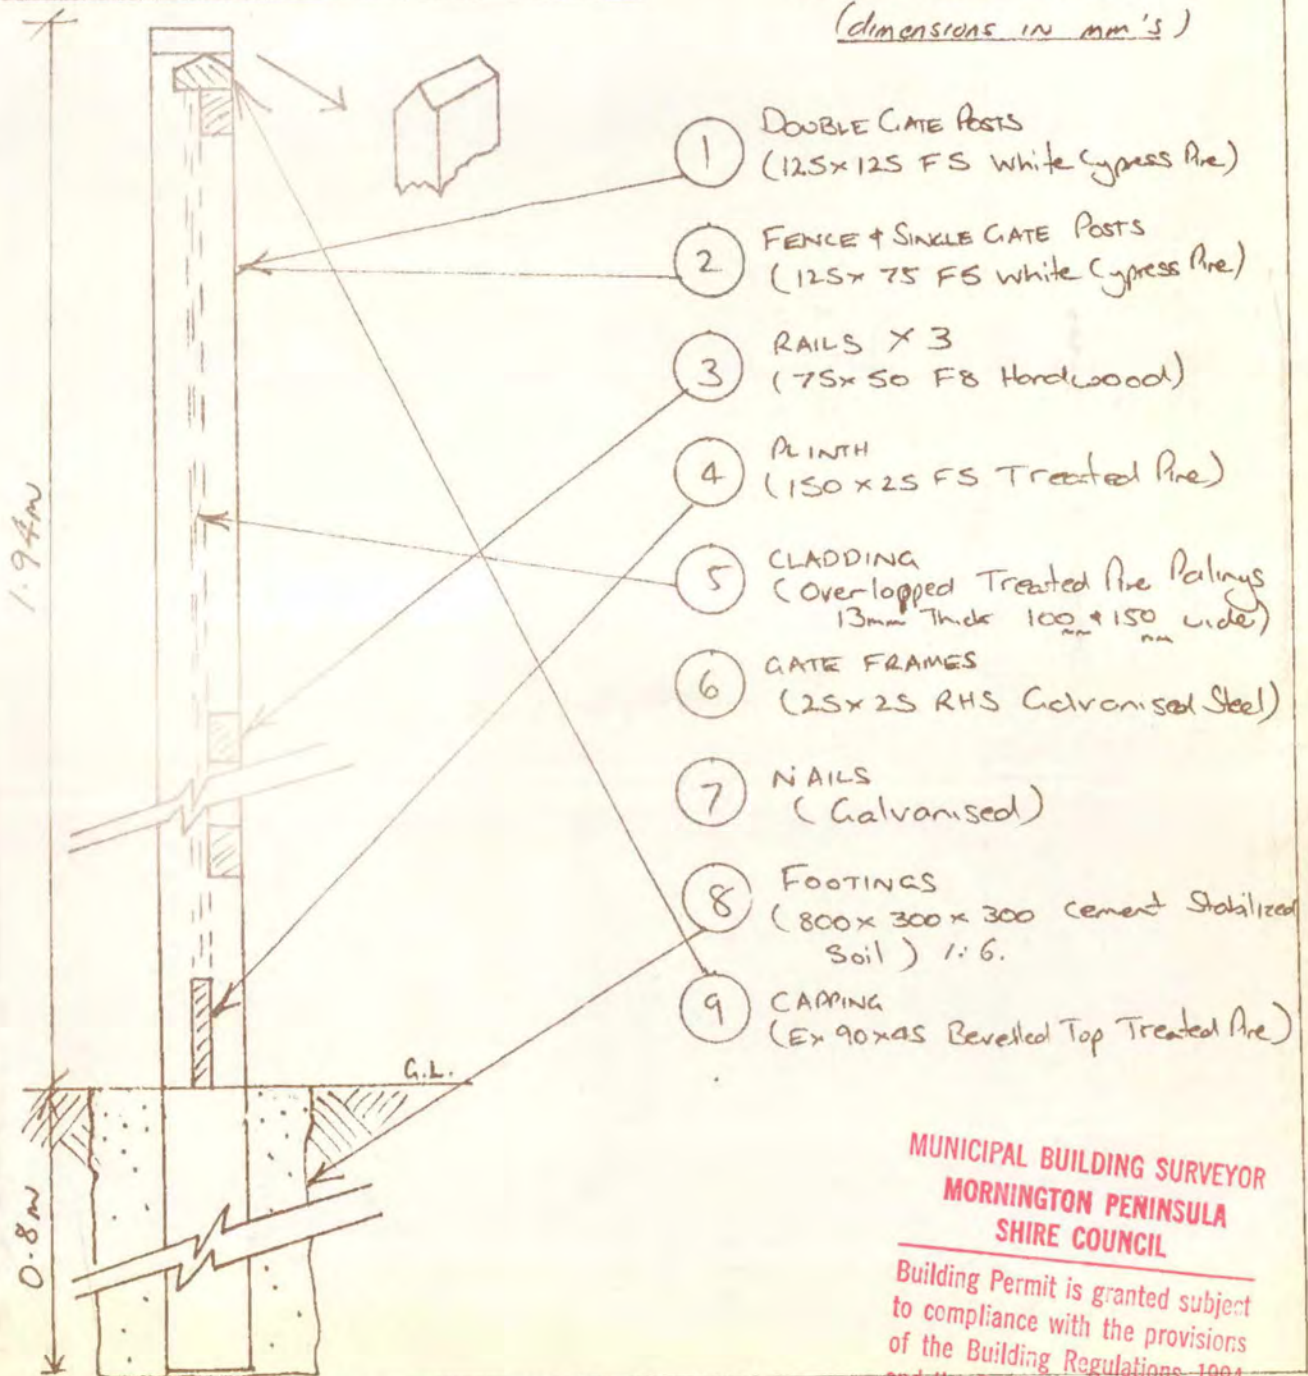 (dimensions in mm's)
1 DOUBLE GATE POSTS
(125x125 F5 White Cypress Pine)
2 FENCE & SINGLE GATE POSTS
(125x 75 F5 White Cypress Pine)
3 RAILS X 3
(75x50 F8 Hardwood)
4 PLINTH
(150 x 25 F5 Treated Pine)
5 CLADDING
(Overlapped Treated Pine Palings
13mm Thick 100mm & 150mm wide)
6 GATE FRAMES
(25x25 RHS Galvanised Steel)
7 NAILS
(Galvanised)
8 FOOTINGS
(800x 300x 300 Cement Stabilized
Soil) 1:6.
9 CAPPING
(Ex 90x45 Bevelled Top Treated Pine)
1.94m
G.L.
0.8m
MUNICIPAL BUILDING SURVEYOR
MORNINGTON PENINSULA
SHIRE COUNCIL
Building Permit is granted subject
to compliance with the provisions
of the Building Regulations 1994